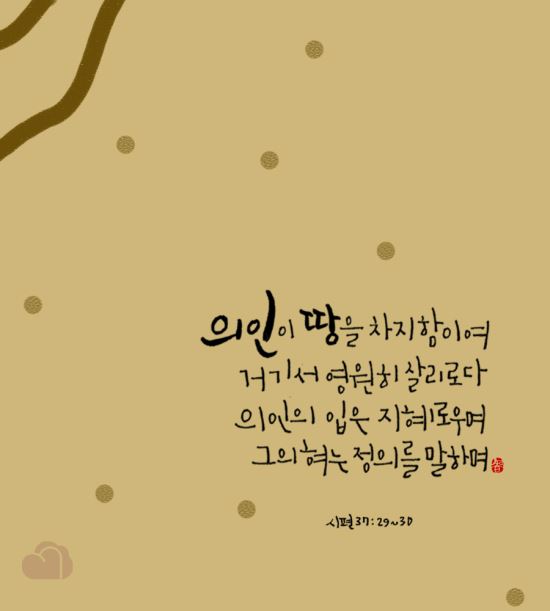 의인이 땅을 차지함이여
거기서 영원히 살리로다
의인의 입은 지혜로우며
그의 혀는 정의를 말하며
시편 37:29~30